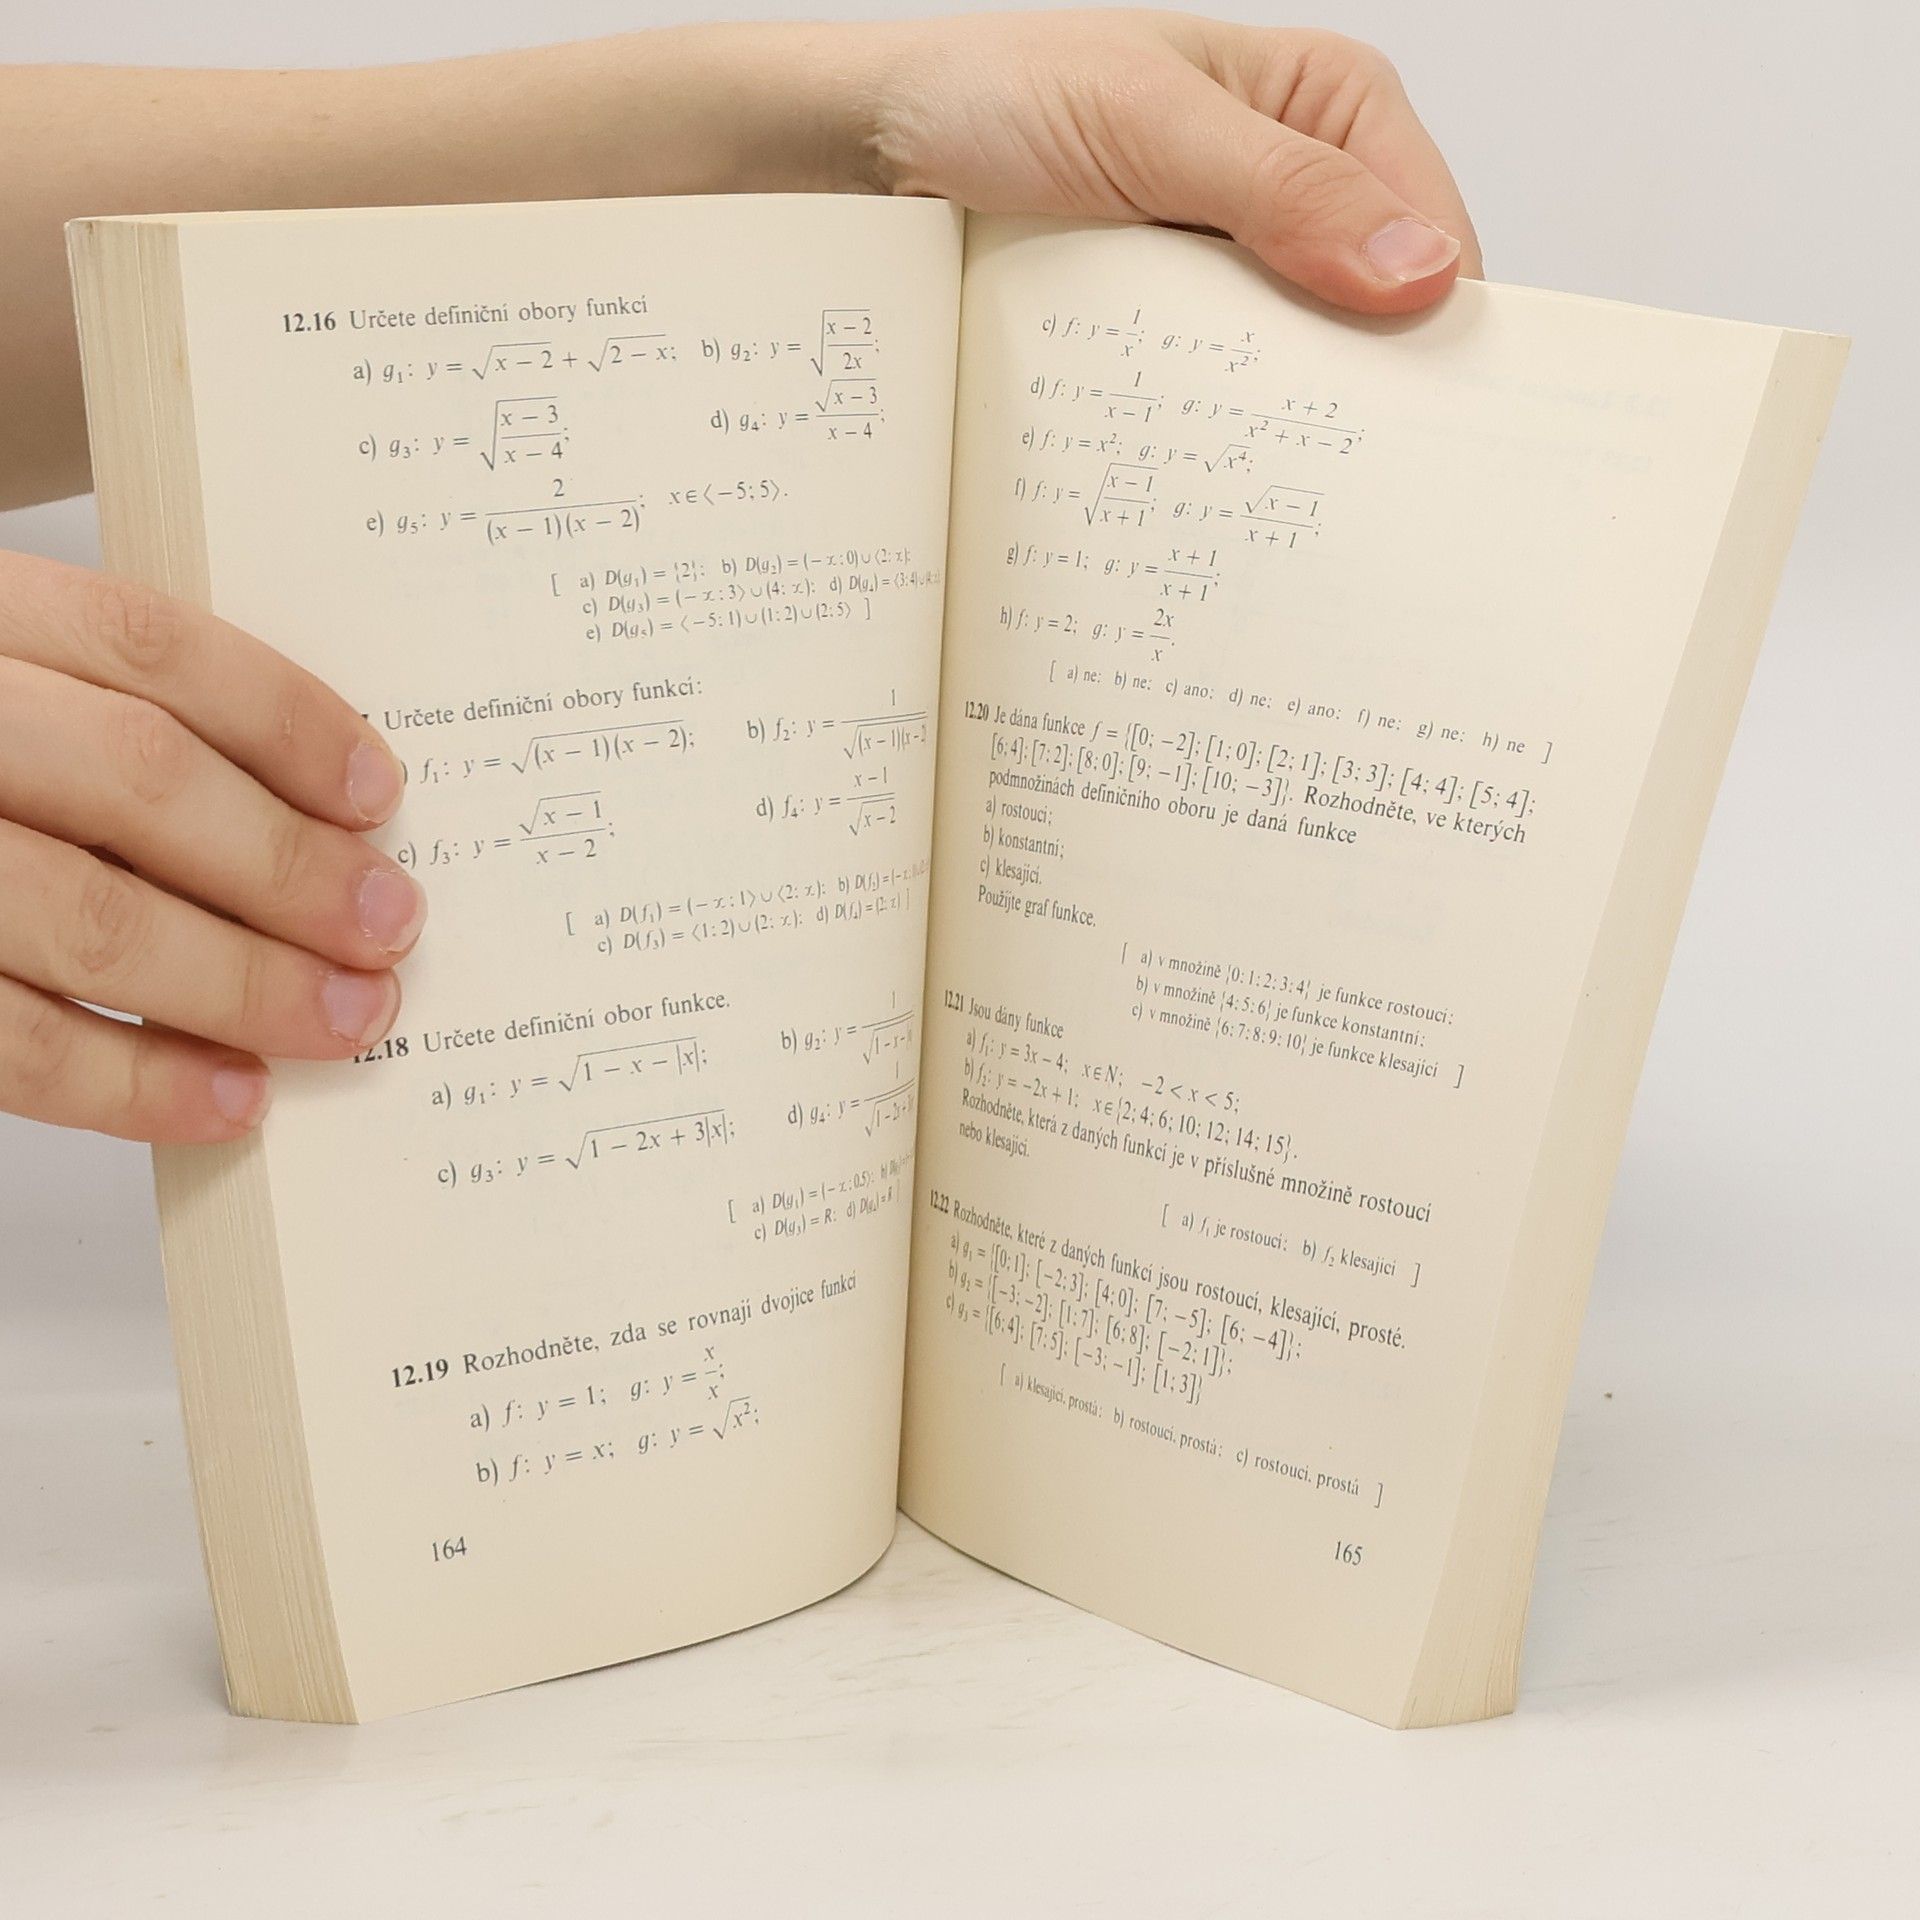 12.16 Určete definiční obory funkcí
a) g₁: y = √(x − 2) + √(2 − x); b) g₂: y = √((x − 2)/(2x));
c) g₃: y = √((x − 3)/(x − 4)); d) g₄: y = √(x − 3)/(x − 4);
e) g₅: y = 2/((x − 1)(x − 2)); x ∈ ⟨−5; 5⟩.
[ a) D(g₁) = {2}; b) D(g₂) = (−∞; 0) ∪ ⟨2; ∞);
c) D(g₃) = (−∞; 3⟩ ∪ (4; ∞); d) D(g₄) = ⟨3; 4) ∪ (4; ∞)
e) D(g₅) = ⟨−5; 1) ∪ (1; 2) ∪ (2; 5⟩ ]
Určete definiční obory funkcí:
f₁: y = √((x − 1)(x − 2)); b) f₂: y = 1/√((x − 1)(x − 2)
c) f₃: y = √(x − 1)/(x − 2); d) f₄: y = (x − 1)/√(x − 2)
[ a) D(f₁) = (−∞; 1⟩ ∪ ⟨2; ∞); b) D(f₂) = (−∞;
c) D(f₃) = ⟨1; 2) ∪ (2; ∞); d) D(f₄) = (2; ∞) ]
12.18 Určete definiční obor funkce.
a) g₁: y = √(1 − x − |x|); b) g₂: y = 1/√(1 − x −
c) g₃: y = √(1 − 2x + 3|x|); d) g₄: y = 1/√(1 − 2x +
[ a) D(g₁) = (−∞; 0,5⟩; b)
c) D(g₃) = R; d) D(g₄) = R ]
12.19 Rozhodněte, zda se rovnají dvojice funkcí
a) f: y = 1; g: y = x/x;
b) f: y = x; g: y = √(x²);
164
c) f: y = 1/x; g: y = x/x²;
d) f: y = 1/(x − 1); g: y = (x + 2)/(x² + x − 2);
e) f: y = x²; g: y = √(x⁴);
f) f: y = √((x − 1)/(x + 1)); g: y = √(x − 1)/(x + 1);
g) f: y = 1; g: y = (x + 1)/(x + 1);
h) f: y = 2; g: y = 2x/x.
[ a) ne; b) ne; c) ano; d) ne; e) ano; f) ne; g) ne; h) ne ]
12.20 Je dána funkce f = {[0; −2]; [1; 0]; [2; 1]; [3; 3]; [4; 4]; [5; 4];
[6; 4]; [7; 2]; [8; 0]; [9; −1]; [10; −3]}. Rozhodněte, ve kterých
podmnožinách definičního oboru je daná funkce
a) rostoucí;
b) konstantní;
c) klesající.
Použijte graf funkce.
[ a) v množině {0; 1; 2; 3; 4} je funkce rostoucí;
b) v množině {4; 5; 6} je funkce konstantní;
c) v množině {6; 7; 8; 9; 10} je funkce klesající ]
12.21 Jsou dány funkce
a) f₁: y = 3x − 4; x ∈ N; −2 < x < 5;
b) f₂: y = −2x + 1; x ∈ {2; 4; 6; 10; 12; 14; 15}.
Rozhodněte, která z daných funkcí je v příslušné množině rostoucí
nebo klesající.
[ a) f₁ je rostoucí; b) f₂ klesající ]
12.22 Rozhodněte, které z daných funkcí jsou rostoucí, klesající, prosté.
a) g₁ = {[0; 1]; [−2; 3]; [4; 0]; [7; −5]; [6; −4]};
b) g₂ = {[−3; −2]; [1; 7]; [6; 8]; [−2; 1]};
c) g₃ = {[6; 4]; [7; 5]; [−3; −1]; [1; 3]}
[ a) klesající, prostá; b) rostoucí, prostá; c) rostoucí, prostá ]
165